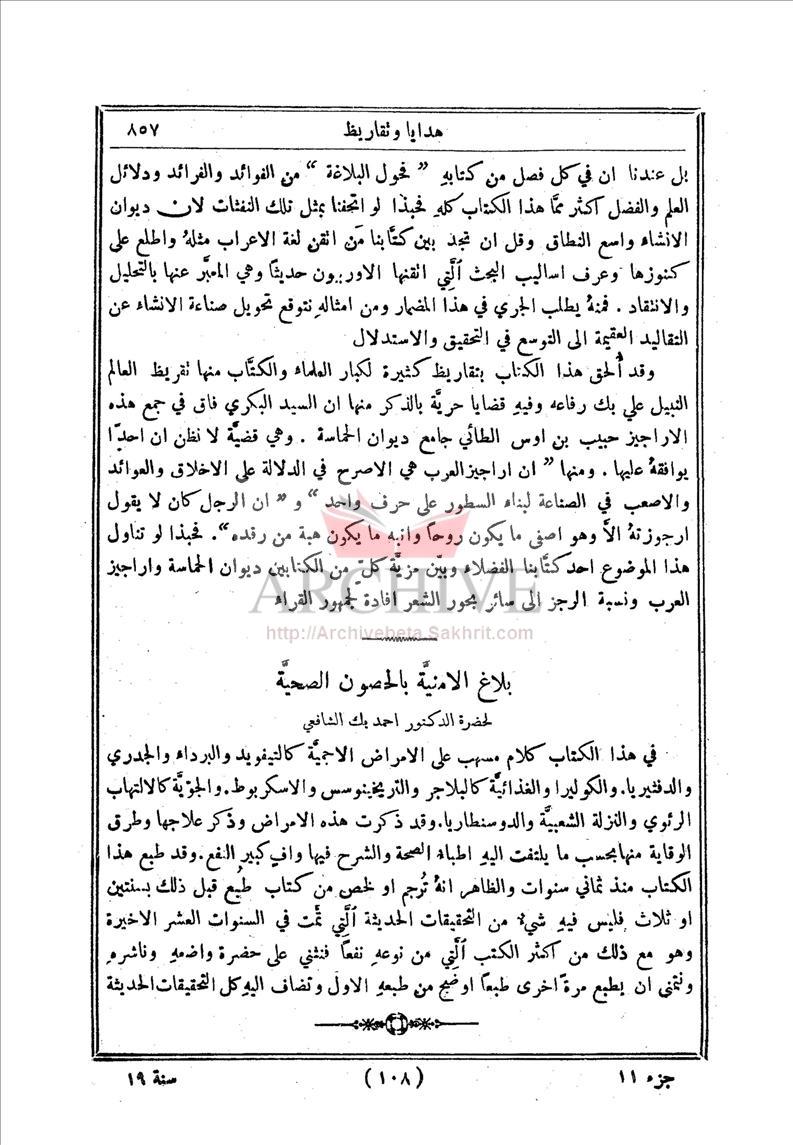 هدايا وتقاريظ ٨٥٧
بل عندنا ان في كل فصل من كتابهِ " فحول البلاغة " من الفوائد والفرائد ودلائل
العلم والفضل اكثر ممَّا هذا الكتاب كلهِ فحبذا لو اتحفنا بمثل تلك النفثات لان ديوان
الانشاء واسع النطاق وقل ان تجد بين كتَّابنا مَن اتقن لغة الاعراب مثلهُ واطلع على
كنوزها وعرف اساليب البحث الَّتي اتقنها الاوربيون حديثًا وهي المعبَّر عنها بالتحليل
والانتقاد . فمنهُ يطلب الجري في هذا المضمار ومن امثالهِ نتوقع تحويل صناعة الانشاء عن
التقاليد العقيمة الى التوسع في التحقيق والاستدلال
وقد أُلحق هذا الكتاب بتقاريظ كثيرة لكبار العلماء والكتَّاب منها تقريظ العالم
النبيل علي بك رفاعه وفيهِ قضايا حريَّة بالذكر منها ان السيد البكري فاق في جمع هذه
الاراجيز حبيب بن اوس الطائي جامع ديوان الحماسة . وهي قضيَّة لا نظن ان احدًا
يوافقهُ عليها . ومنها " ان اراجيز العرب هي الاصرح في الدلالة على الاخلاق والعوائد
والاصعب في الصناعة لبناء السطور على حرف واحد " و " ان الرجل كان لا يقول
ارجوزتهُ الاَّ وهو اصفى ما يكون روحًا وانبه ما يكون هبة من رقده ". فحبذا لو تناول
هذا الموضوع احد كتَّابنا الفضلاء وبيَّن مزيَّة كلٍّ من الكتابين ديوان الحماسة واراجيز
العرب ونسبة الرجز الى سائر بحور الشعر افادة لجمهور القراء
ARCHIVE
http://Archivebeta.Sakhrit.com
بلاغ الامنيَّة بالحصون الصحيَّة
لحضرة الدكتور احمد بك الشافعي
في هذا الكتاب كلام مسهب على الامراض الاجميَّة كالتيفويد والبرداء والجدري
والدفثيريا. والكوليرا والغذائيَّة كالبلاجر والتريخينوسس والاسكربوط. والجوّيَّة كالالتهاب
الرئوي والنزلة الشعبيَّة والدوسنطاريا. وقد ذكرت هذه الامراض وذكر علاجها وطرق
الوقاية منها بحسب ما يلتفت اليهِ اطباء الصحة والشرح فيها وافٍ كبير النفع. وقد طبع هذا
الكتاب منذ ثماني سنوات والظاهر انهُ تُرجم او لخص من كتاب طُبع قبل ذلك بسنتين
او ثلاث فليس فيهِ شيءٌ من التحقيقات الحديثة الَّتي تمَّت في السنوات العشر الاخيرة
وهو مع ذلك من اكثر الكتب الَّتي من نوعهِ نفعًا فنثني على حضرة واضعهِ وناشرهِ
ونتمنى ان يطبع مرةً اخرى طبعًا اوضح من طبعهِ الاول وتضاف اليهِ كل التحقيقات الحديثة
جزء ١١ (١٠٨) سنة ١٩